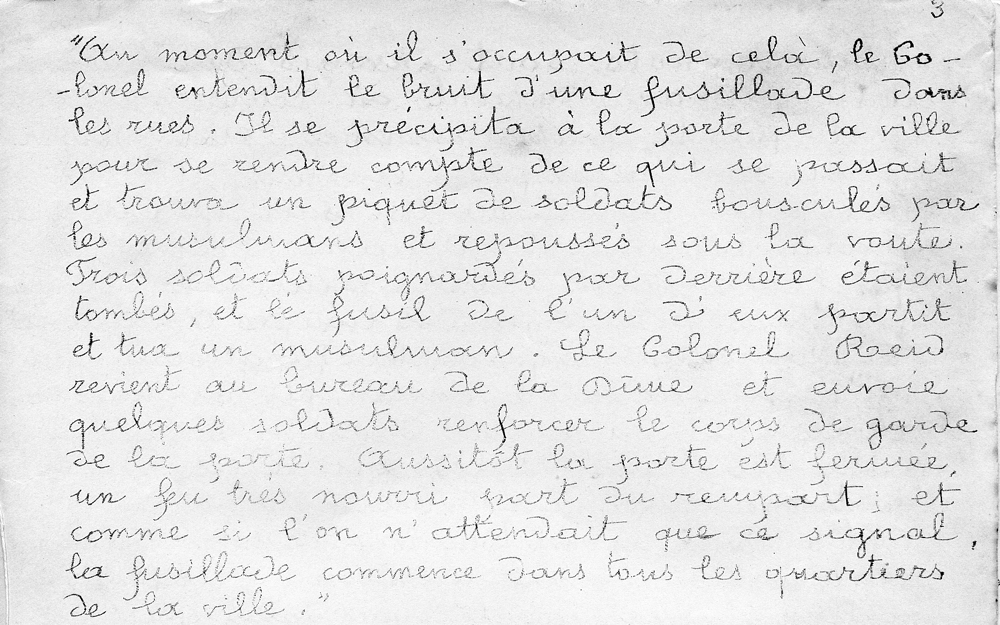 3
"Au moment où il s'occupait de celà, le Co-
-lonel entendit le bruit d'une fusillade dans
les rues. Il se précipita à la porte de la ville
pour se rendre compte de ce qui se passait
et trouva un piquet de soldats bousculés par
les musulmans et repoussés sous la voute.
Trois soldats poignardés par derrière étaient
tombés, et le fusil de l'un d'eux partit
et tua un musulman. Le Colonel Reid
revient au bureau de la Dîme et envoie
quelques soldats renforcer le corps de garde
de la porte. Aussitôt la porte est fermée,
un feu très nourri part du rempart; et
comme si l'on n'attendait que ce signal,
la fusillade commence dans tous les quartiers
de la ville."